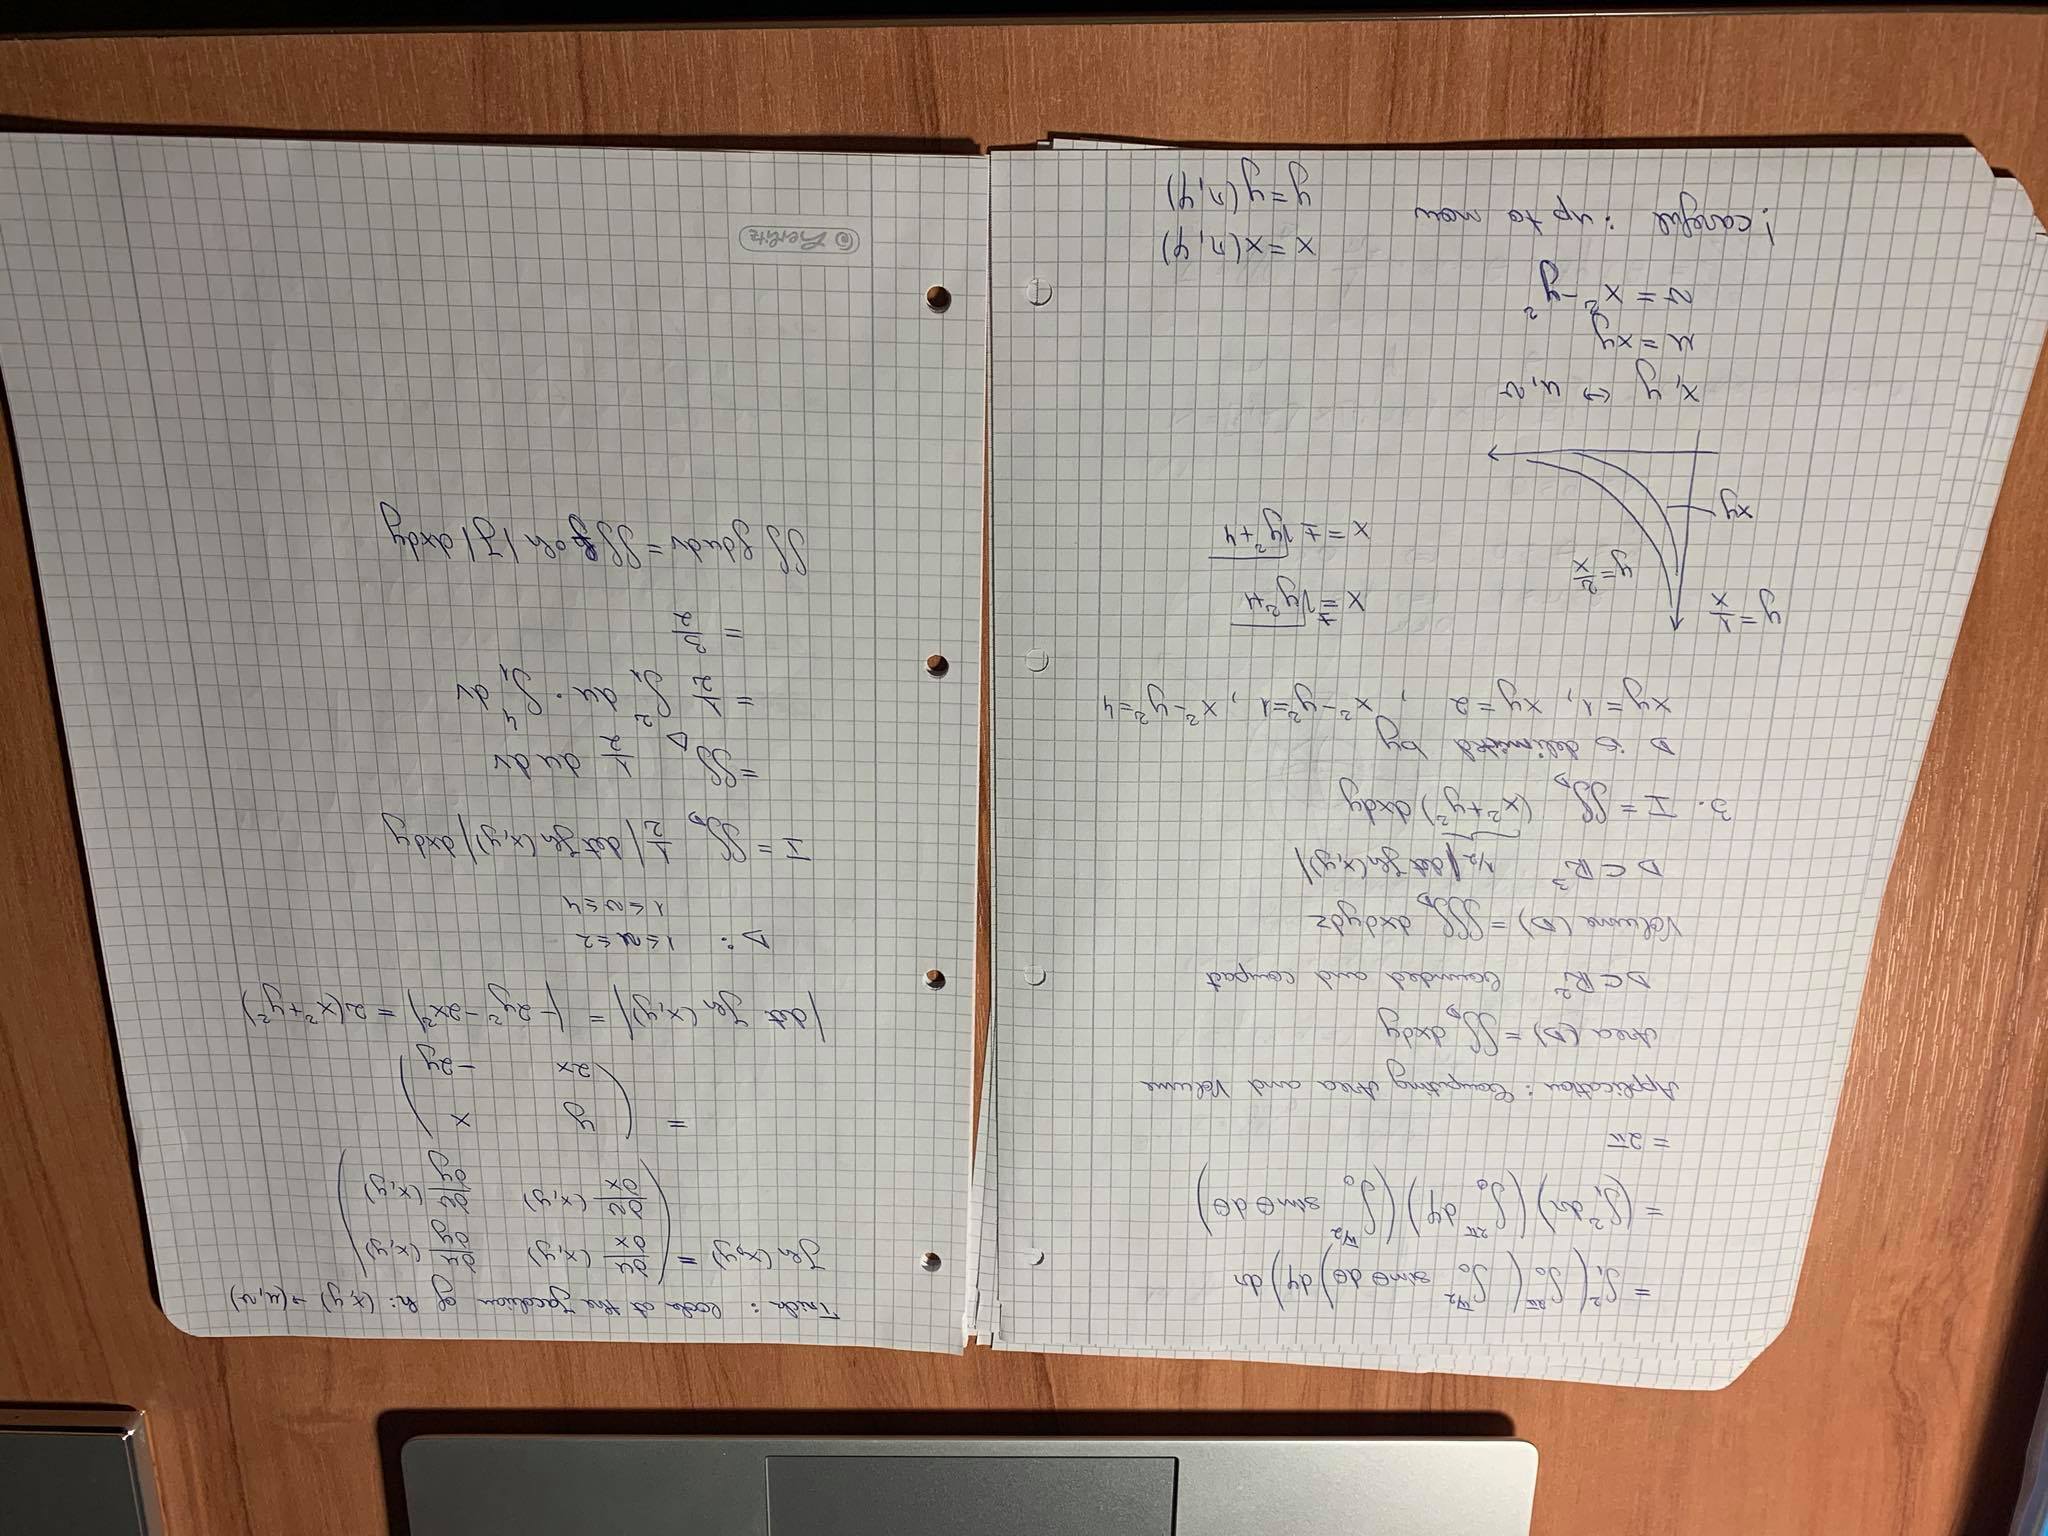 = ∫₁² ( ∫₀^{2π} ( ∫₀^{π/2} sinθ dθ ) dφ ) dr
= ( ∫₁² dr ) ( ∫₀^{2π} dφ ) ( ∫₀^{π/2} sinθ dθ )
= 2π
Application: Computing Area and Volume
Area (D) = ∬_D dxdy
D ⊂ ℝ² bounded and compact
Volume (D) = ∭_D dxdydz
D ⊂ ℝ³ 1/2 |det Jh(x,y)|
3. I = ∬_D (x²+y²) dxdy
D is delimited by
xy = 1, xy = 2 , x²-y²=1 , x²-y²=4
y = 1/x
y = 2/x
xy
x = ±√(y²+1)
x = ± √(y²+4)
x, y ↔ u, v
u = xy
v = x² - y²
! careful : up to now
x = x(r, φ)
y = y(r, φ)
Trick: look at the Jacobian of h: (x,y) → (u,v)
Jh (x,y) = ( ∂u/∂x (x,y) ∂u/∂y (x,y)
∂v/∂x (x,y) ∂v/∂y (x,y) )
= ( y x
2x -2y )
|det Jh (x,y)| = |-2y² - 2x²| = 2(x²+y²)
D: 1 ≤ u ≤ 2
1 ≤ v ≤ 4
I = ∬_D 1/2 |det Jh(x,y)| dxdy
= ∬_D 1/2 du dv
= 1/2 ∫₁² du · ∫₁⁴ dv
= 3/2
∬ f du dv = ∬ f∘h |J| dxdy
Herlitz